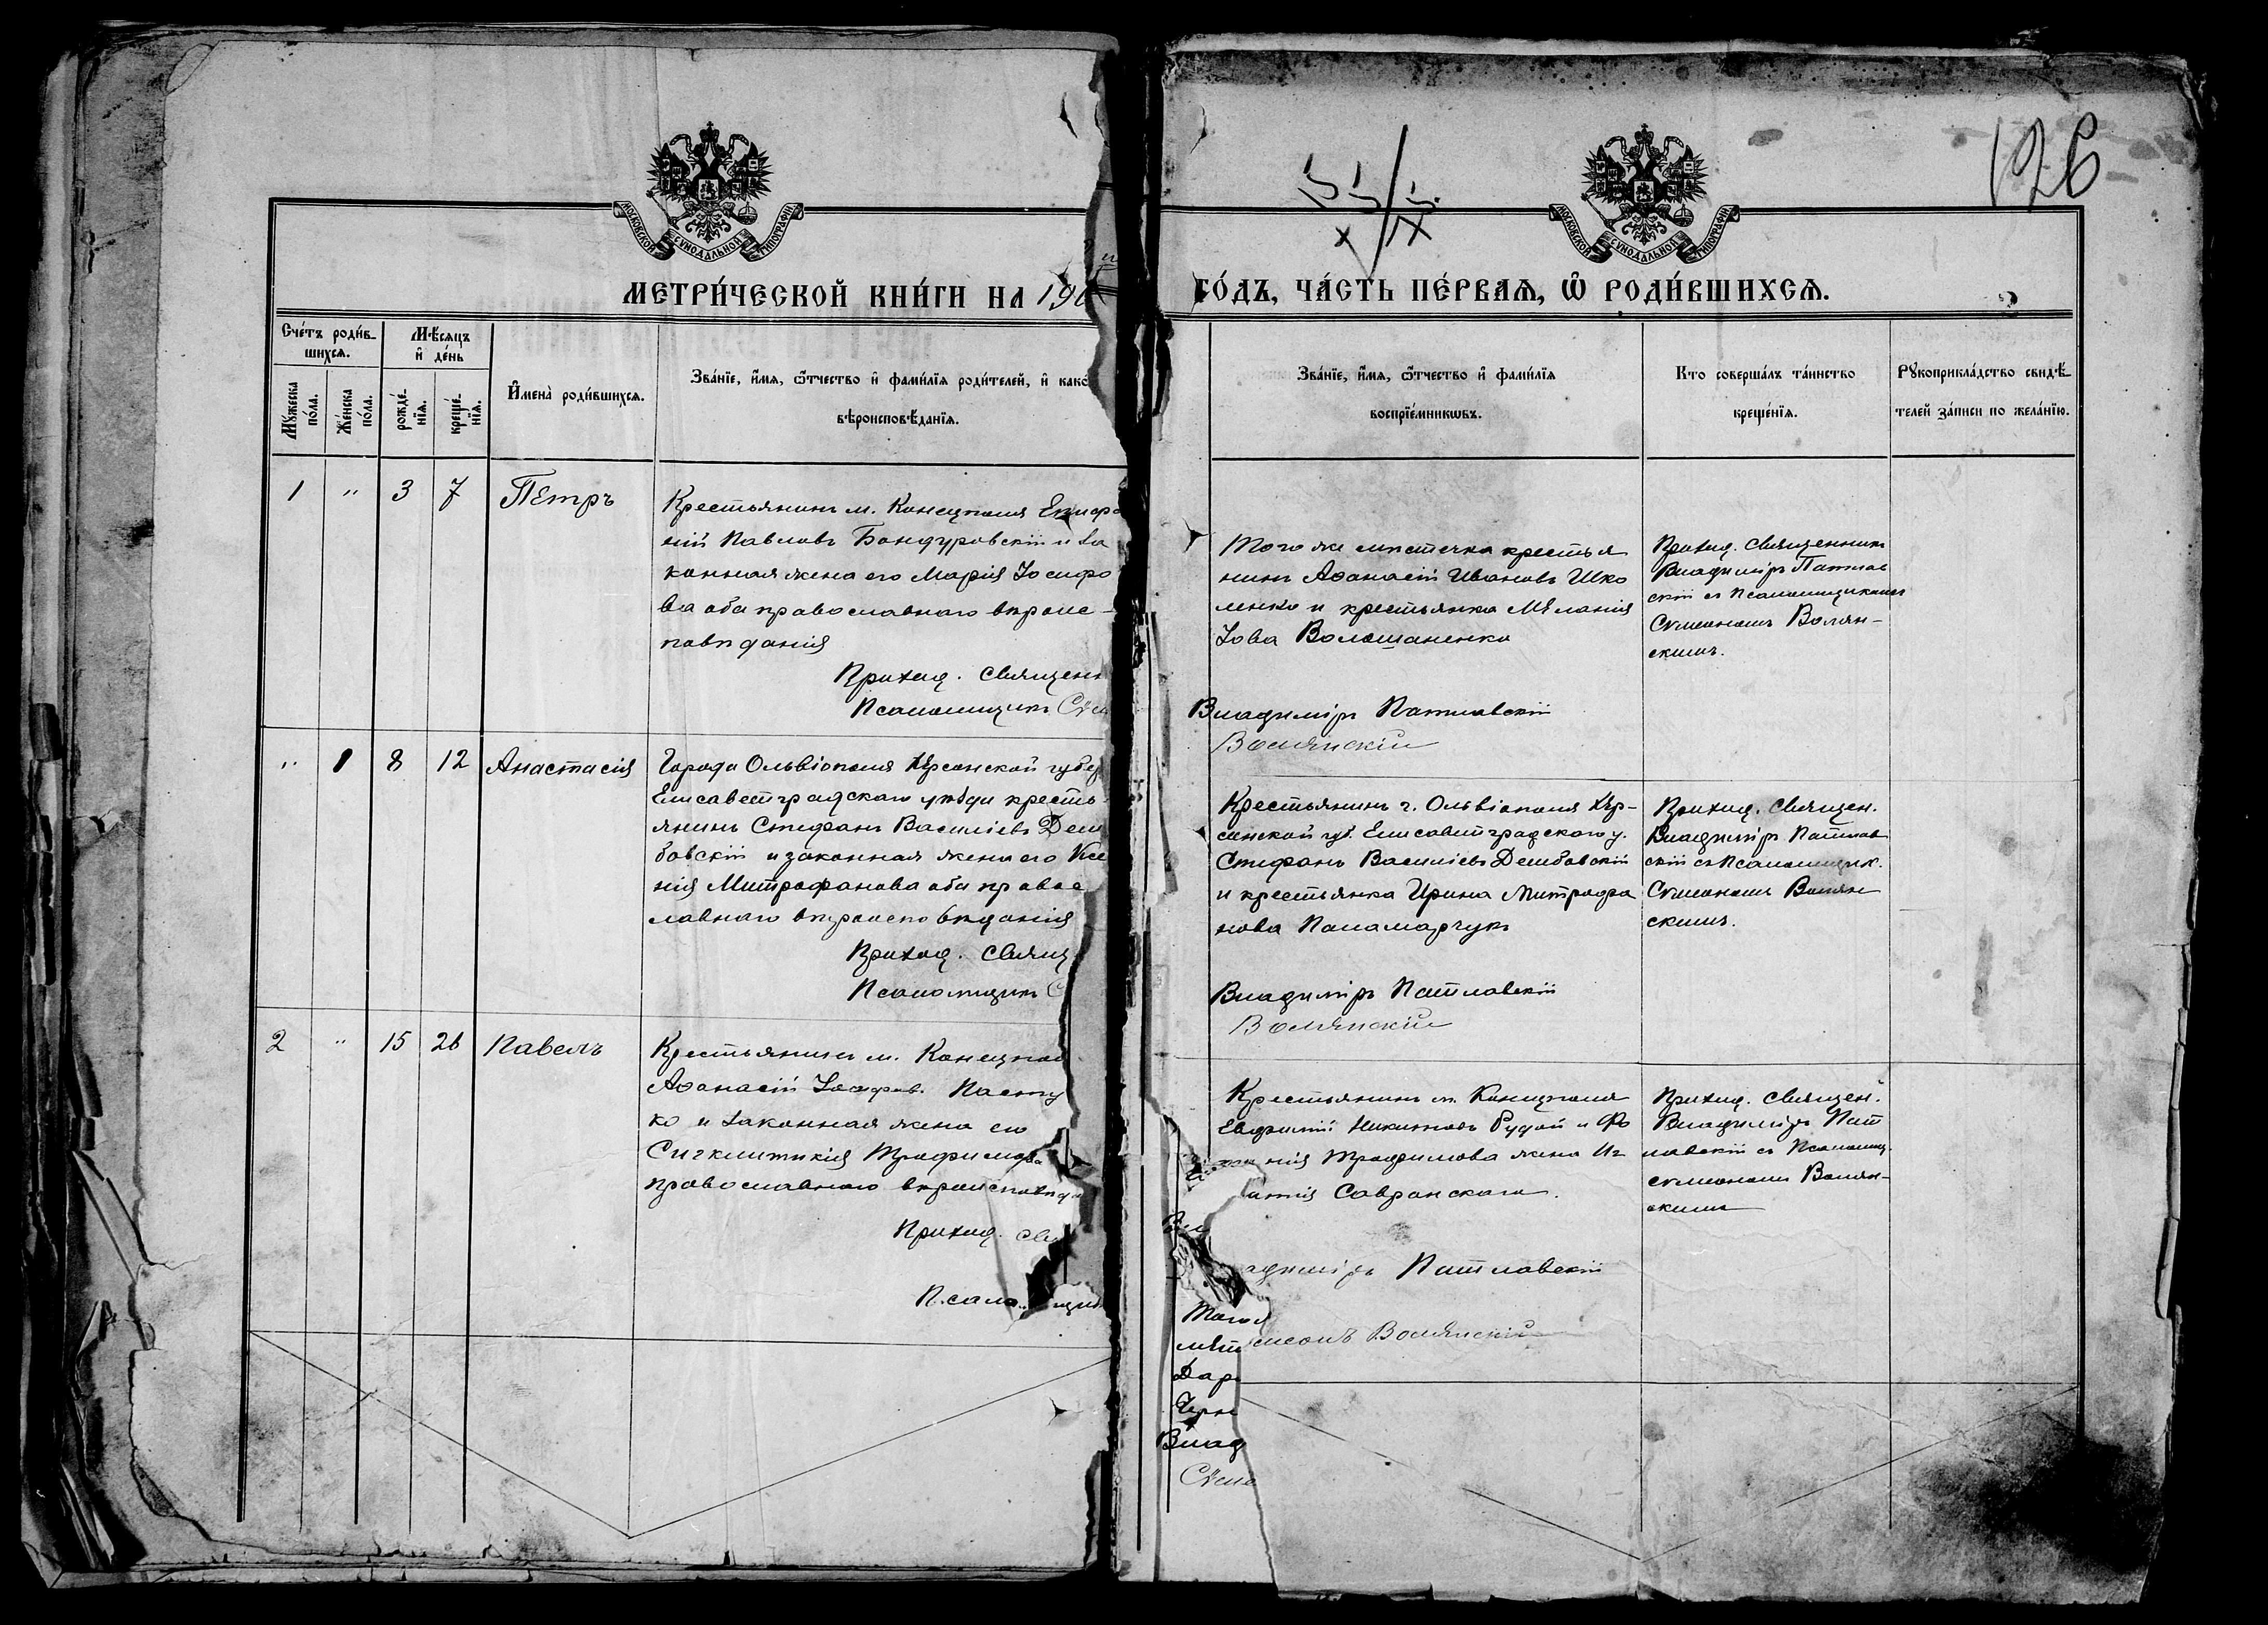 126
МОСКОВСКОЙ СУНОДАЛЬНОЙ ТИПОГРАФІИ
МОСКОВСКОЙ СУНОДАЛЬНОЙ ТИПОГРАФІИ
МЕТРИ́ЧЕСКОЙ КНИ́ГИ НА 190
ГО́ДЪ, ЧА́СТЬ ПЕ́РВАѦ, Ѡ҆ РОДИ́ВШИХСѦ.
Сче́тъ роди́в-
шихсѧ.
Мꙋ́жеска по́ла.
Же́нска по́ла.
Мѣ́сѧцъ и҆ де́нь
рожде́-нїѧ.
креще́-нїѧ.
И҆мена̀ роди́вшихсѧ.
Зва́нїе, и҆́мѧ, ѻ҆́тчество и҆ фами́лїѧ роди́телей, и҆ како
вѣроисповѣ́данїѧ.
Зва́нїе, и҆́мѧ, ѻ҆́тчество и҆ фами́лїѧ
воспрїе́мникѡвъ.
Кто соверша́лъ та́инство
креще́нїѧ.
Рꙋкоприкла́дство свидѣ́-
телей за́писи по жела́нїю.
1 " 3 7 Петръ
Крестьянинъ м. Конецполя Епифа
ній Павловъ Бондуровскій и за
конная жена его Марія Іосифо
ва оба православнаго вѣроис-
повѣданія
Приход. Священн
Псаломщикъ Сѵм
Того же мѣстечка крестья
нинъ Аѳанасій Ивановъ Шко
ленко и крестьянка Меланія
Іова Волошаненко
Владиміръ Патлавскій
Волянскій
Приход. Священникъ
Владиміръ Патлав
скій съ Псаломщикомъ
Сѵмеономъ Волян-
скимъ.
" 1 8 12 Анастасія
Города Ольвіополя Херсонской губер
Елисаветградскаго уѣзда кресть-
янинъ Стефанъ Василіевъ Дем
бовскій и законная жена его Ксе
нія Митрофанова оба правос
лавнаго вѣроисповѣданія
Приход. Свящ
Псаломщикъ С
Крестьянинъ г. Ольвіополя Хер-
сонской губ. Елисаветградскаго у.
Стефанъ Василіевъ Дембовскій
и крестьянка Ирина Митрофа
нова Паламарчукъ
Владиміръ Патлавскій
Волянскій
Приход. Священ.
Владиміръ Патлав
скій съ Псаломщик.
Сѵмеономъ Волян
скимъ.
2 " 15 26 Павелъ
Крестьянинъ м. Конецпол
Аѳанасій Іосифов. Пасту
ко и законная жена его
Сигклитикія Трофимова
православнаго вѣроисповѣда
Приход. Св
Псало щик
Крестьянинъ м. Конецполя
Евфимій Никитовъ Рудой и Ѳе
нія Трофимова жена Иг
атія Савранскаго.
адиміръ Патлавскій
меонъ Волянскій
Приход. Священ.
Владиміръ Пат
лавскій съ Псаломщ.
Сѵмеономъ Волян-
скимъ
Того
мѣщ
Дар
Черн
Влад
Сѵме